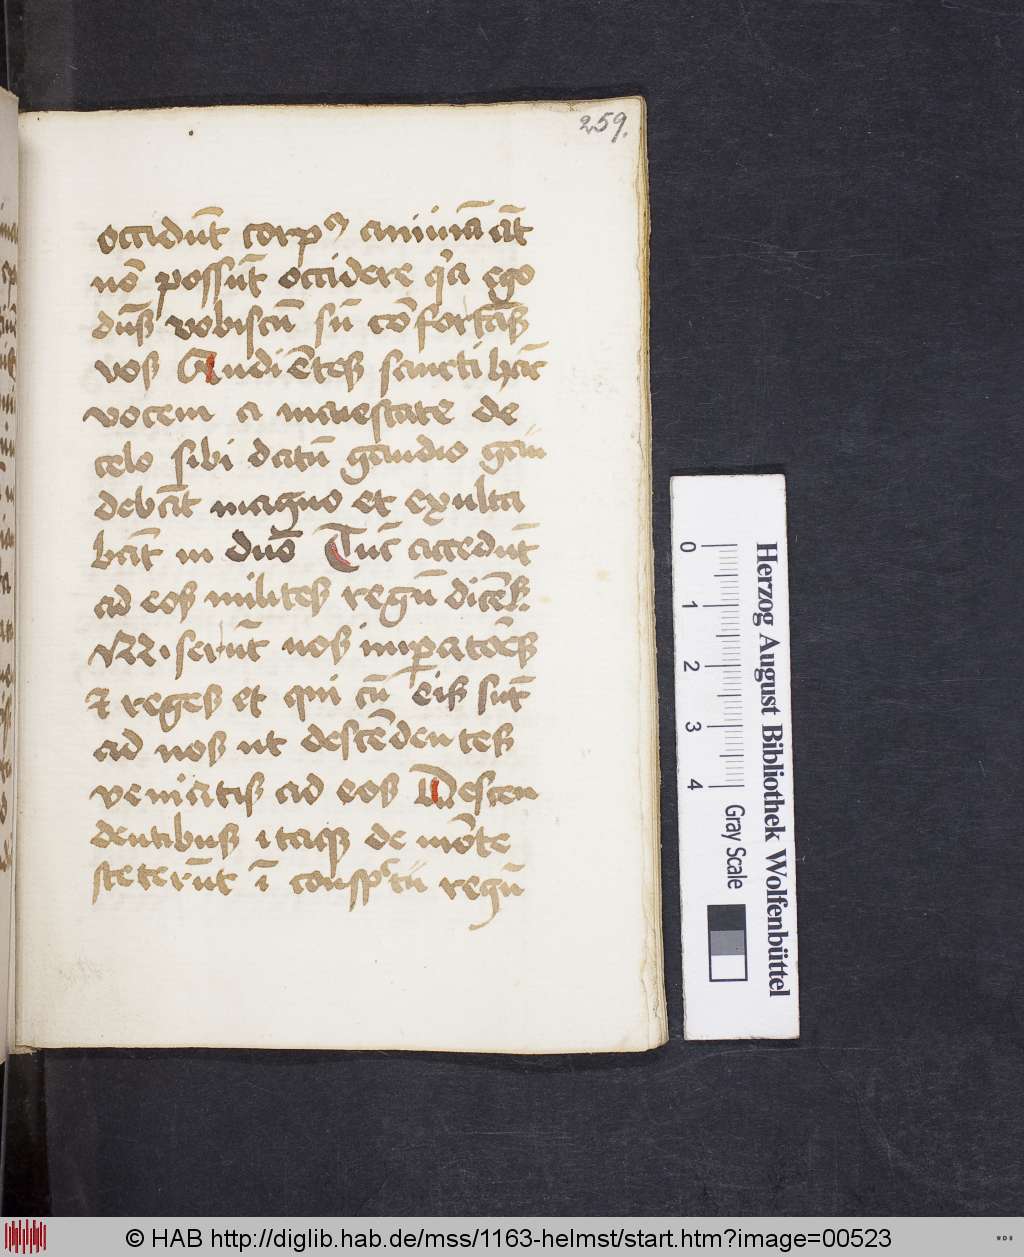 259.
occidūt corpꝰ animā āt
nō possūt occidere qͥa ego
dūs vobiscū sū cōfortās
vos Audiētes sancti hāc
vocem a maiestate de
celo sibi datū gaudio gau
debāt magno et exulta
bāt in dūo Tūc accedūt
ad eos milites regū dicēs.
serūt nos impatōes
et reges et qui cū eis sūt
ad nos ut descēdentes
veniatis ad eos Descen
dentibus itaqꝫ de mōte
steterūt ī conspctu regū
Herzog August Bibliothek Wolfenbüttel
0 1 2 3 4 Gray Scale
© HAB http://diglib.hab.de/mss/1163-helmst/start.htm?image=00523